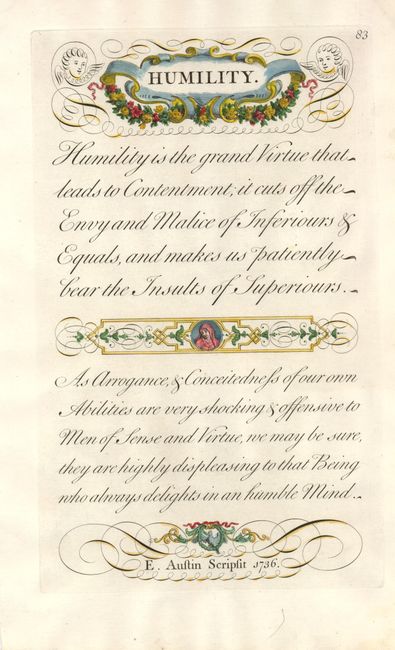 83
HUMILITY.
Humility is the grand Virtue that
leads to Contentment; it cuts off the
Envy and Malice of Inferiours &
Equals, and makes us patiently
bear the Insults of Superiours.
As Arrogance, & Conceitedneſs of our own
Abilities are very shocking & offensive to
Men of Sense and Virtue, we may be sure,
they are highly displeasing to that Being
who always delights in an humble Mind.
E. Auſtin Scripſit 1736.